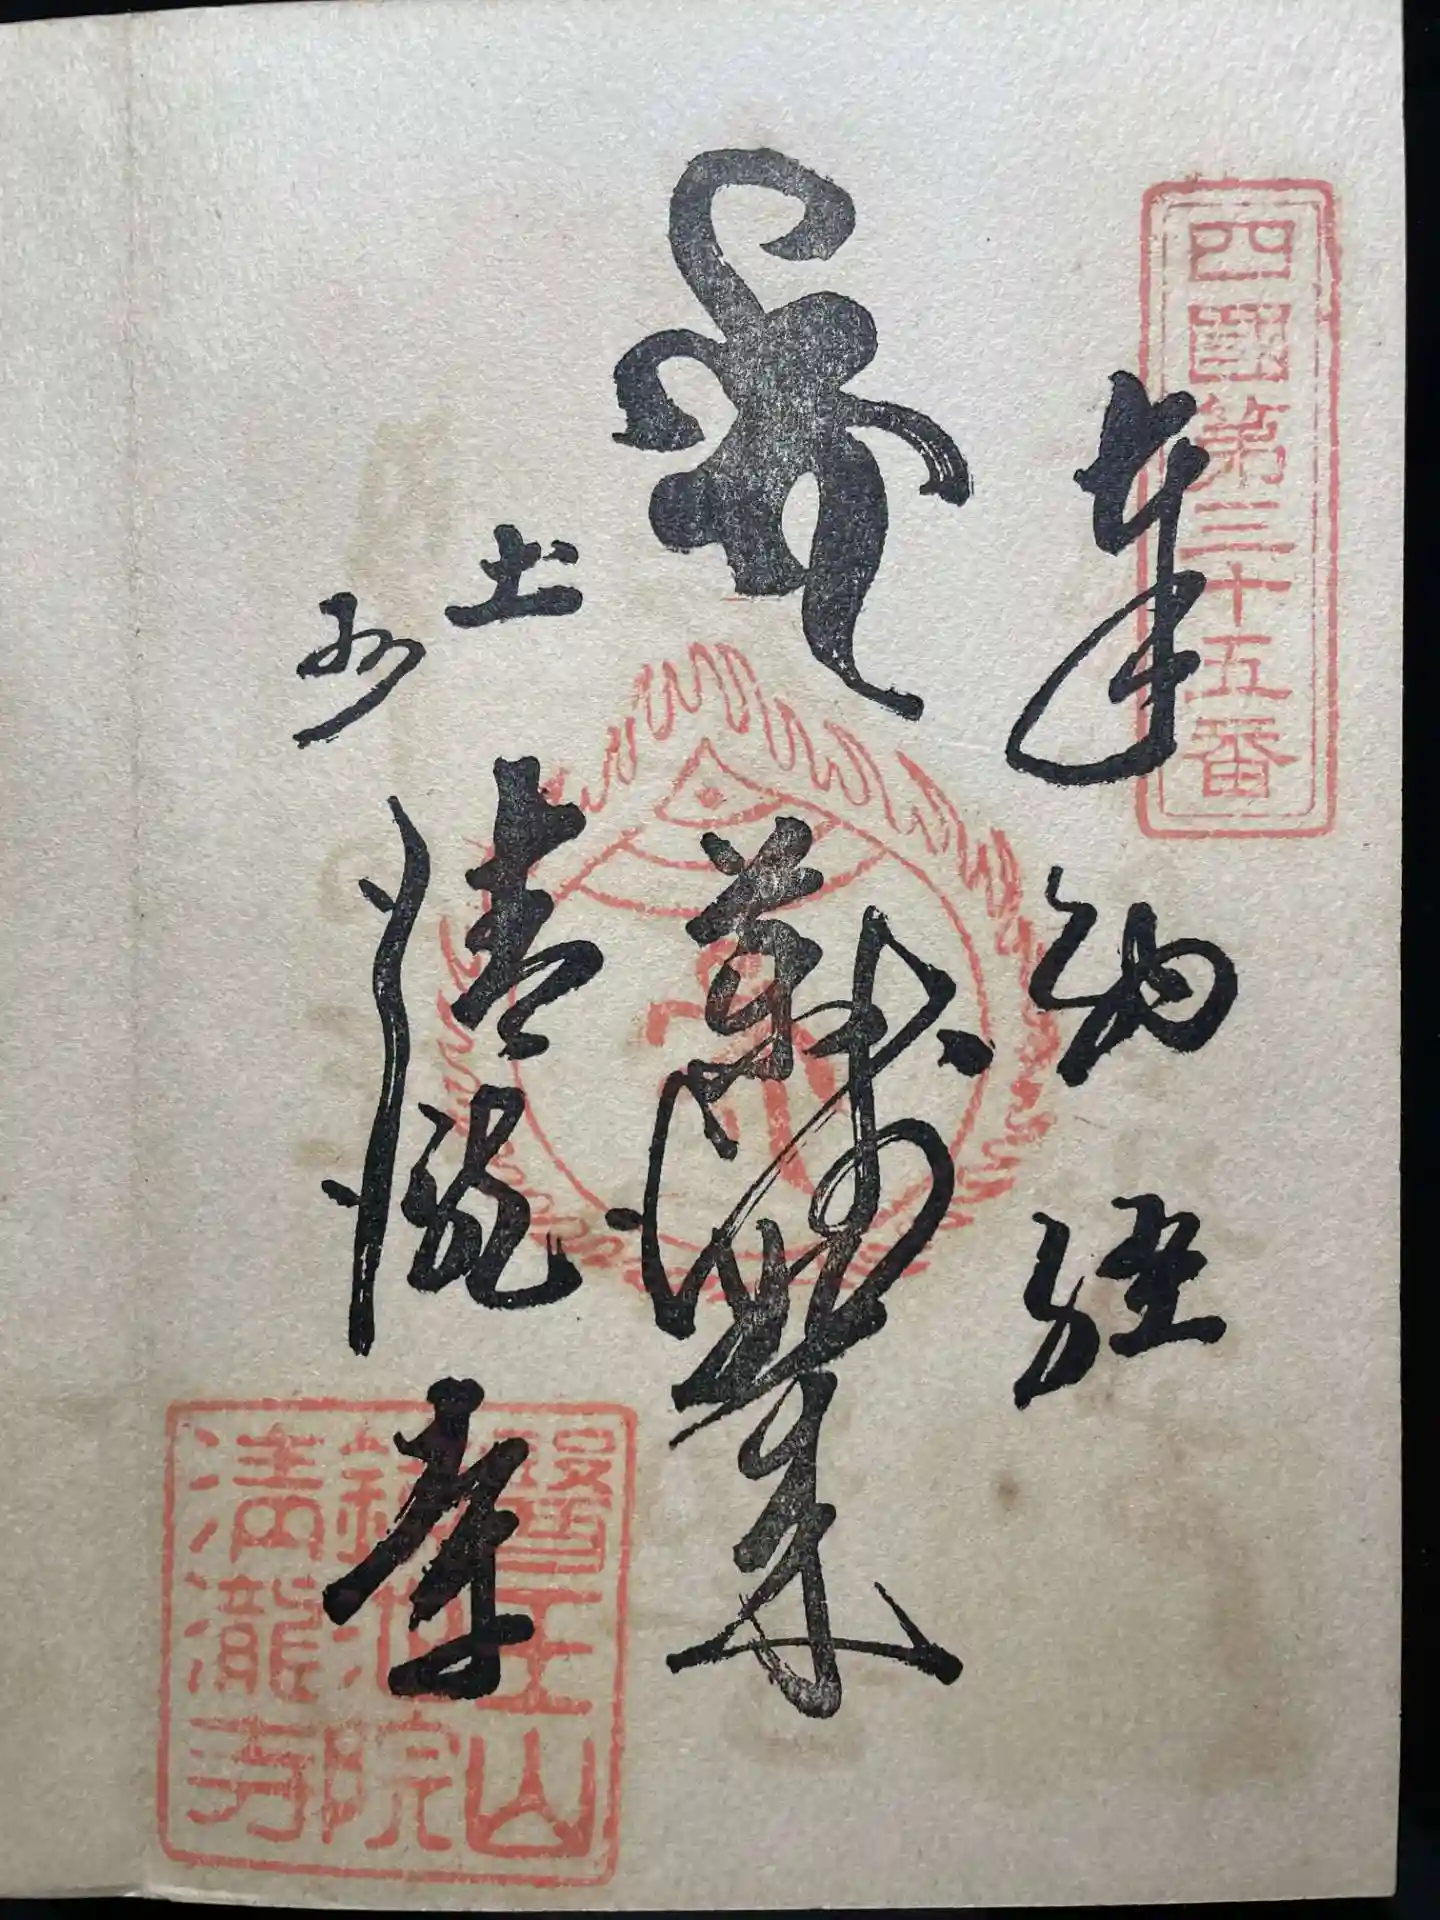 四國第三十五番
奉納経
土州
清瀧寺
醫王山
鏡池院
清瀧寺